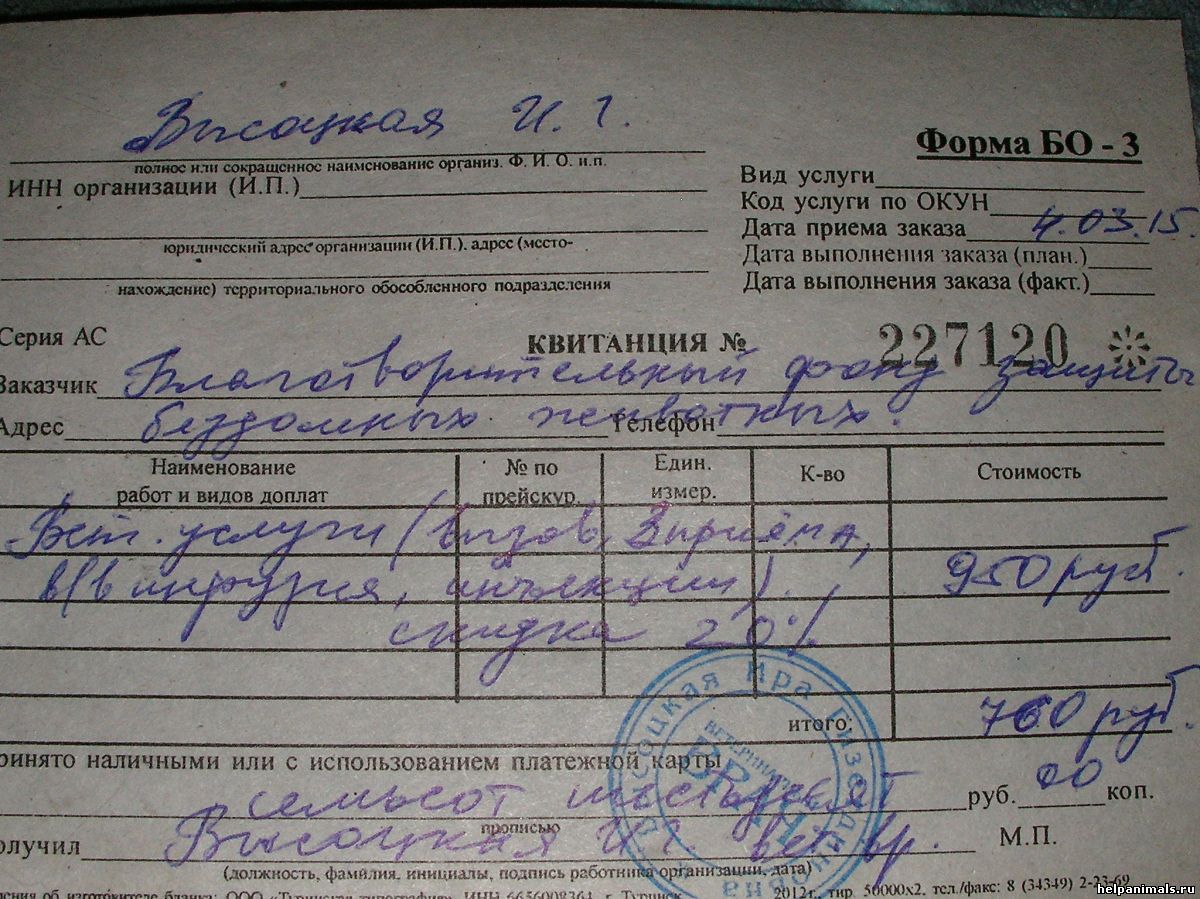 Высоцкая И. Г.
полное или сокращенное наименование организ. Ф. И. О. и.п.
Форма БО - 3
ИНН организации (И.П.)
Вид услуги
Код услуги по ОКУН
Дата приема заказа 4.03.15.
юридический адрес организации (И.П.). адрес (место-
Дата выполнения заказа (план.)
нахождение) территориального обособленного подразделения
Дата выполнения заказа (факт.)
Серия АС
КВИТАНЦИЯ № 227120
Заказчик Благотворительный фонд защиты
Адрес бездомных животных. Телефон
Наименование работ и видов доплат
№ по прейскур.
Един. измер.
К-во
Стоимость
Вет. услуги (вызов, 3 приёма,
в/в инфузия, инъекции). 950 руб.
скидка 20%
итого: 760 руб.
ринято наличными или с использованием платежной карты
семьсот шестьдесят руб. 00 коп.
прописью
олучил Высоцкая И. Г. вет. вр. М.П.
(должность, фамилия, инициалы, подпись работника организации, дата)
Высоцкая Ира Гизединовна
ВЕТЕРИНАРНЫЙ
ВРАЧ
ения об изготовителе бланка: ООО «Туринская типография», ИНН 6656008364, г. Туринск 2012г., тир. 50000х2, тел./факс: 8 (34349) 2-23-69
helpanimals.ru